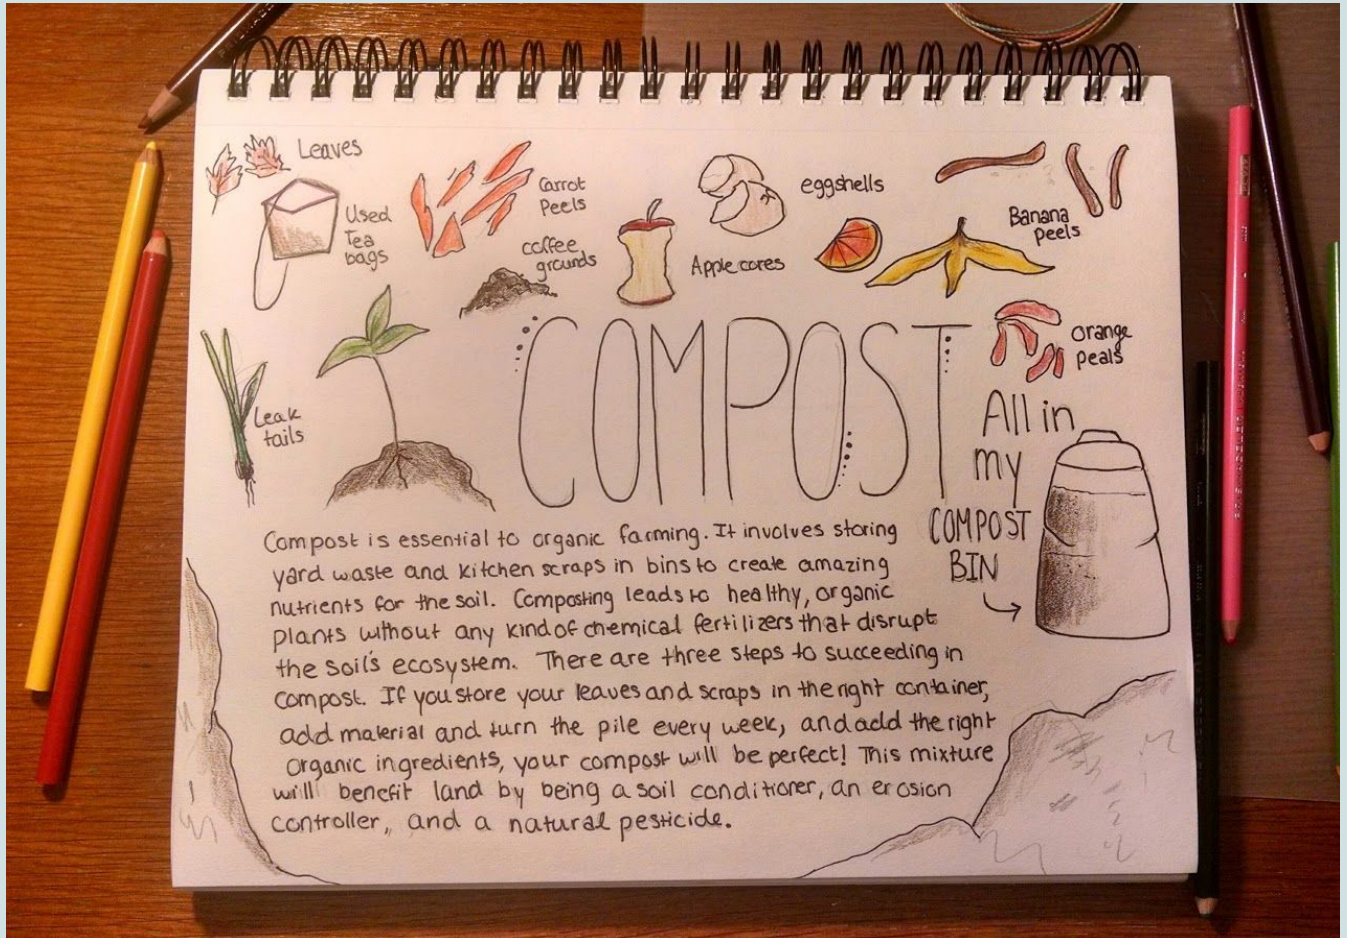 Leaves
Used
Tea
bags
Carrot
Peels
coffee
grounds
Apple cores
eggshells
Banana
peels
Orange
Peals
Leak
tails
COMPOST
All in
my
COMPOST
BIN
Compost is essential to organic farming. It involves storing
yard waste and kitchen scraps in bins to create amazing
nutrients for the soil. Composting leads to healthy, organic
plants without any kind of chemical fertilizers that disrupt
the soil's ecosystem. There are three steps to succeeding in
compost. If you store your leaves and scraps in the right container,
add material and turn the pile every week, and add the right
organic ingredients, your compost will be perfect! This mixture
will benefit land by being a soil conditioner, an erosion
controller, and a natural pesticide.